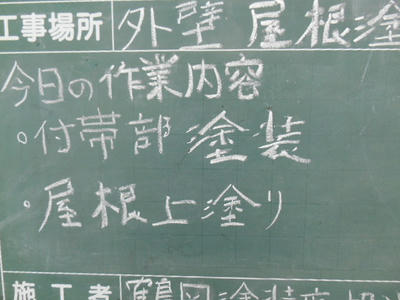 工事場所 外壁 屋根塗
今日の作業内容
。付帯部 塗装
・屋根上塗り
施工者 塗装